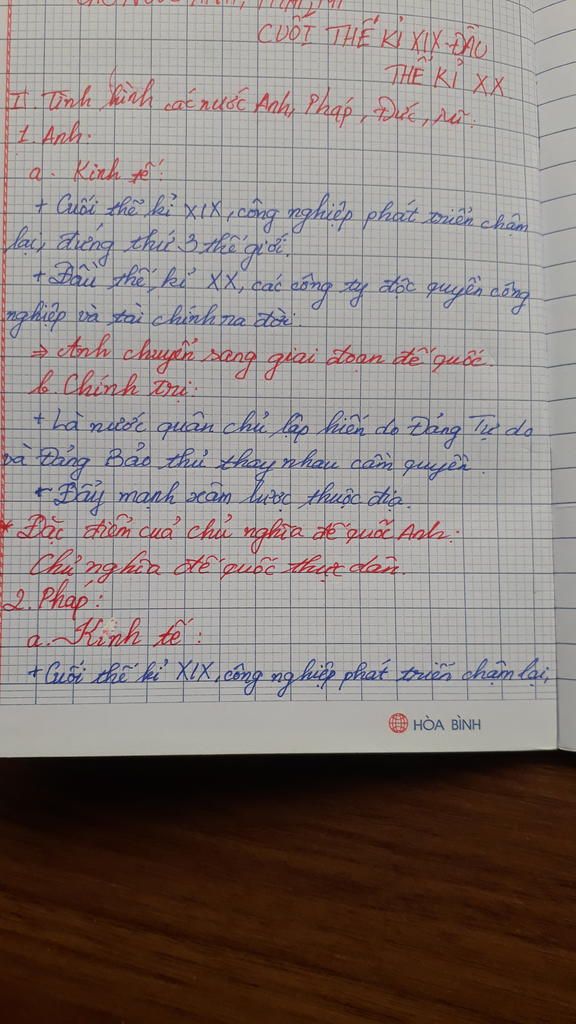 CUỐI THẾ KỈ XIX-ĐẦU
THẾ KỈ XX
II. Tình hình các nước Anh, Pháp, Đức, Mĩ:
1. Anh:
a. Kinh tế:
+ Cuối thế kỉ XIX, công nghiệp phát triển chậm
lại, đứng thứ 3 thế giới.
+ Đầu thế kỉ XX, các công ty độc quyền công
nghiệp và tài chính ra đời.
⇒ Anh chuyển sang giai đoạn đế quốc.
b. Chính trị:
+ Là nước quân chủ lập hiến do Đảng Tự do
và Đảng Bảo thủ thay nhau cầm quyền.
+ Đẩy mạnh xâm lược thuộc địa.
* Đặc điểm cuả chủ nghĩa đế quốc Anh:
Chủ nghĩa đế quốc thực dân.
2. Pháp:
a. Kinh tế:
+ Cuối thế kỉ XIX, công nghiệp phát triển chậm lại,
HÒA BÌNH